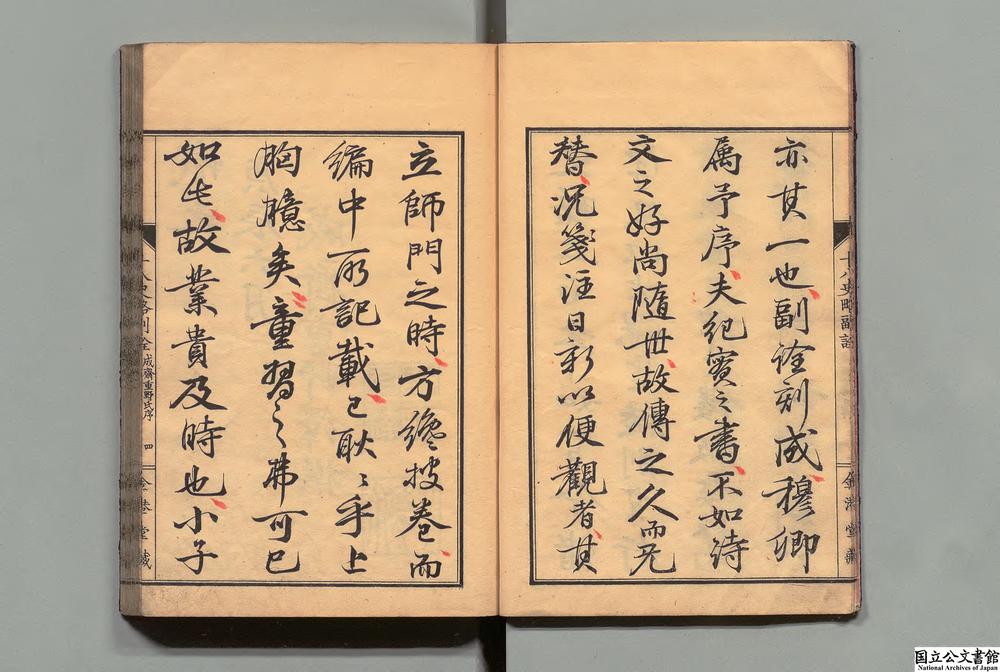 亦其一也、副詮刻成、穆卿
属予序、夫紀實之書、不如詩
文之好尚隨世、故傳之久而无
替、況箋注日新以便觀者、其
十八史略副詮
金港堂藏
立師門之時、方纔披卷、而
編中所記載、已耿〻乎上
胸臆矣、童習之弗可已
如此、故業貴及時也、小子
十八史略副詮 成齋重野氏序 四
金港堂藏
国立公文書館
National Archives of Japan